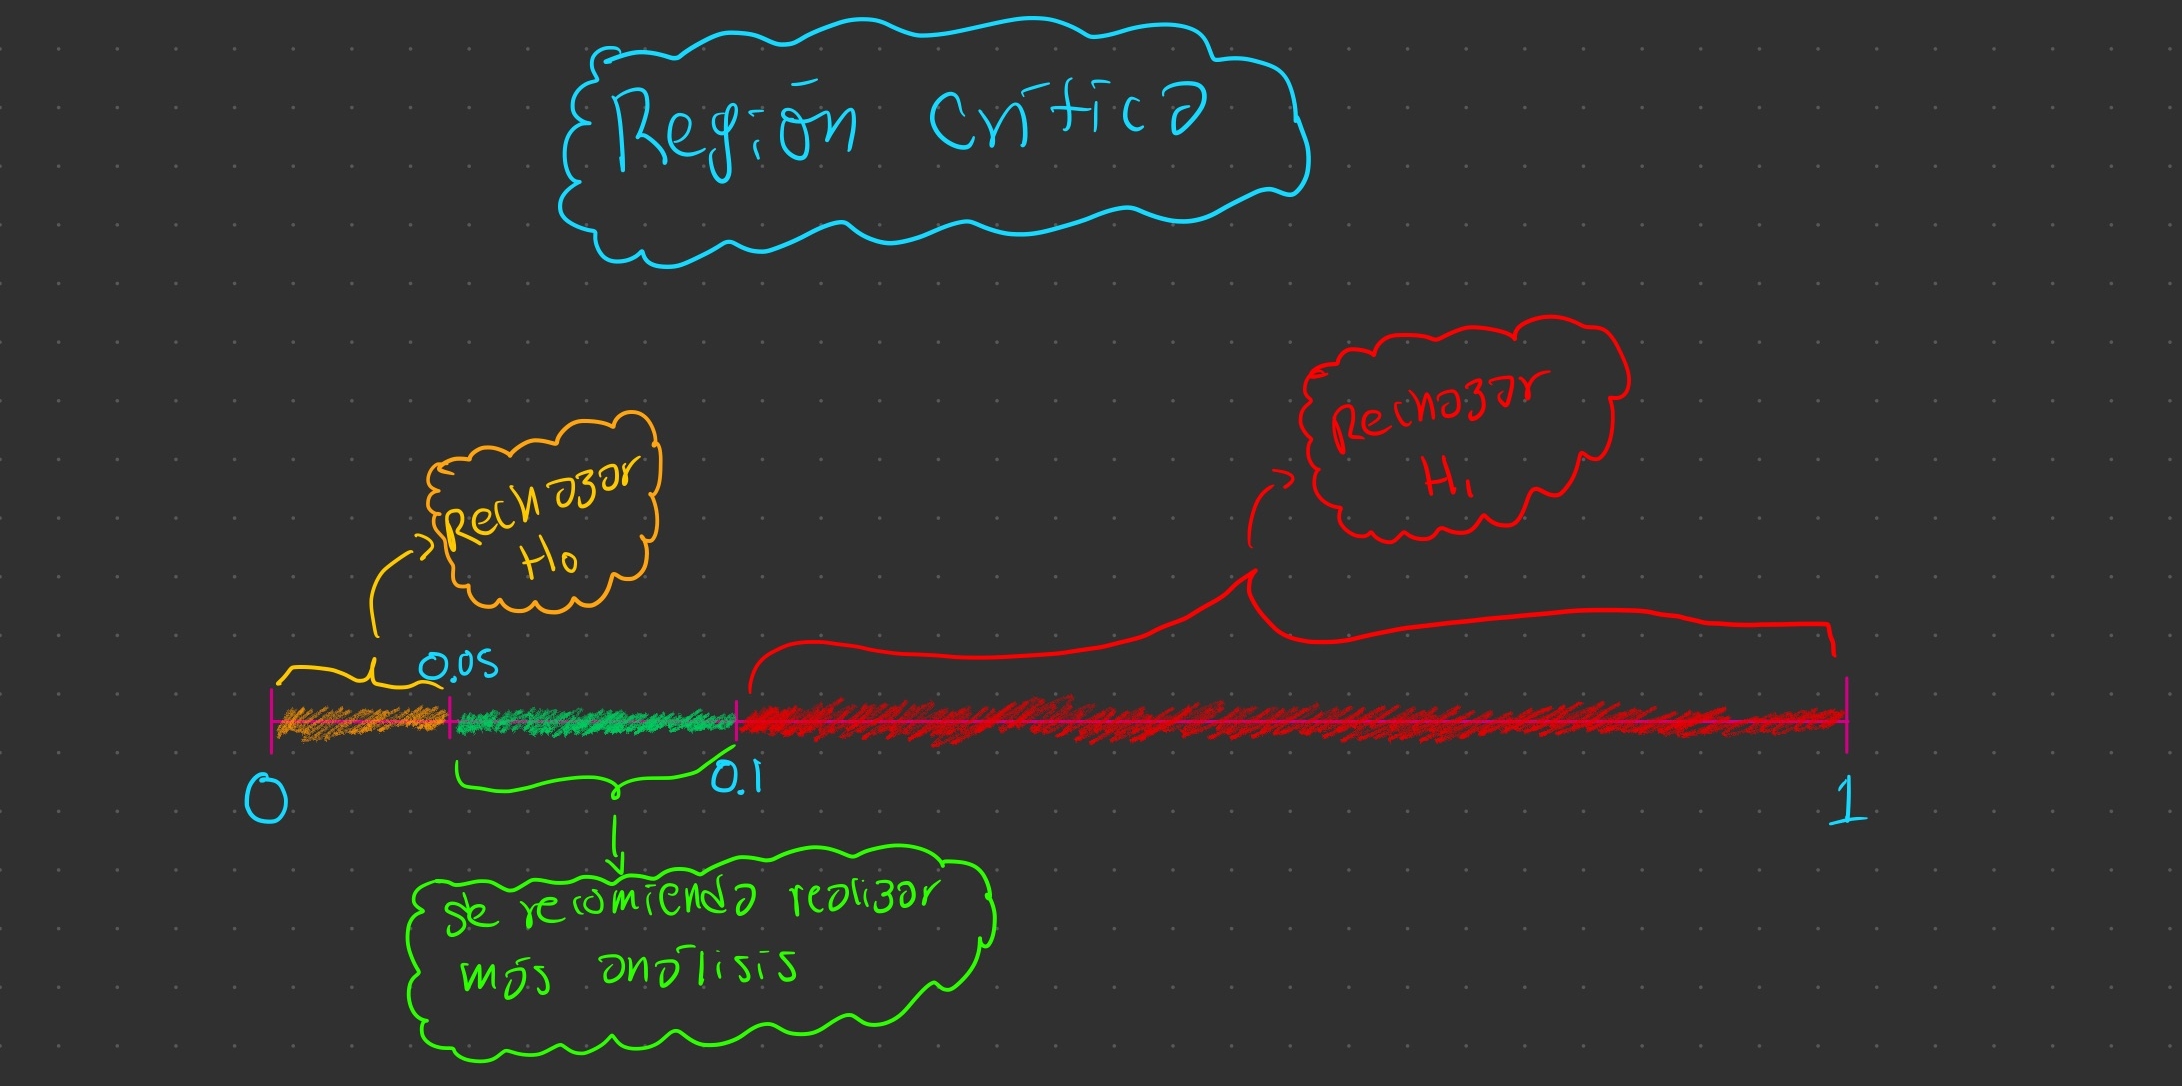 Región crítica
Rechazar
H1
Rechazar
H0
0.05
0
0.1
1
se recomienda realizar
más análisis